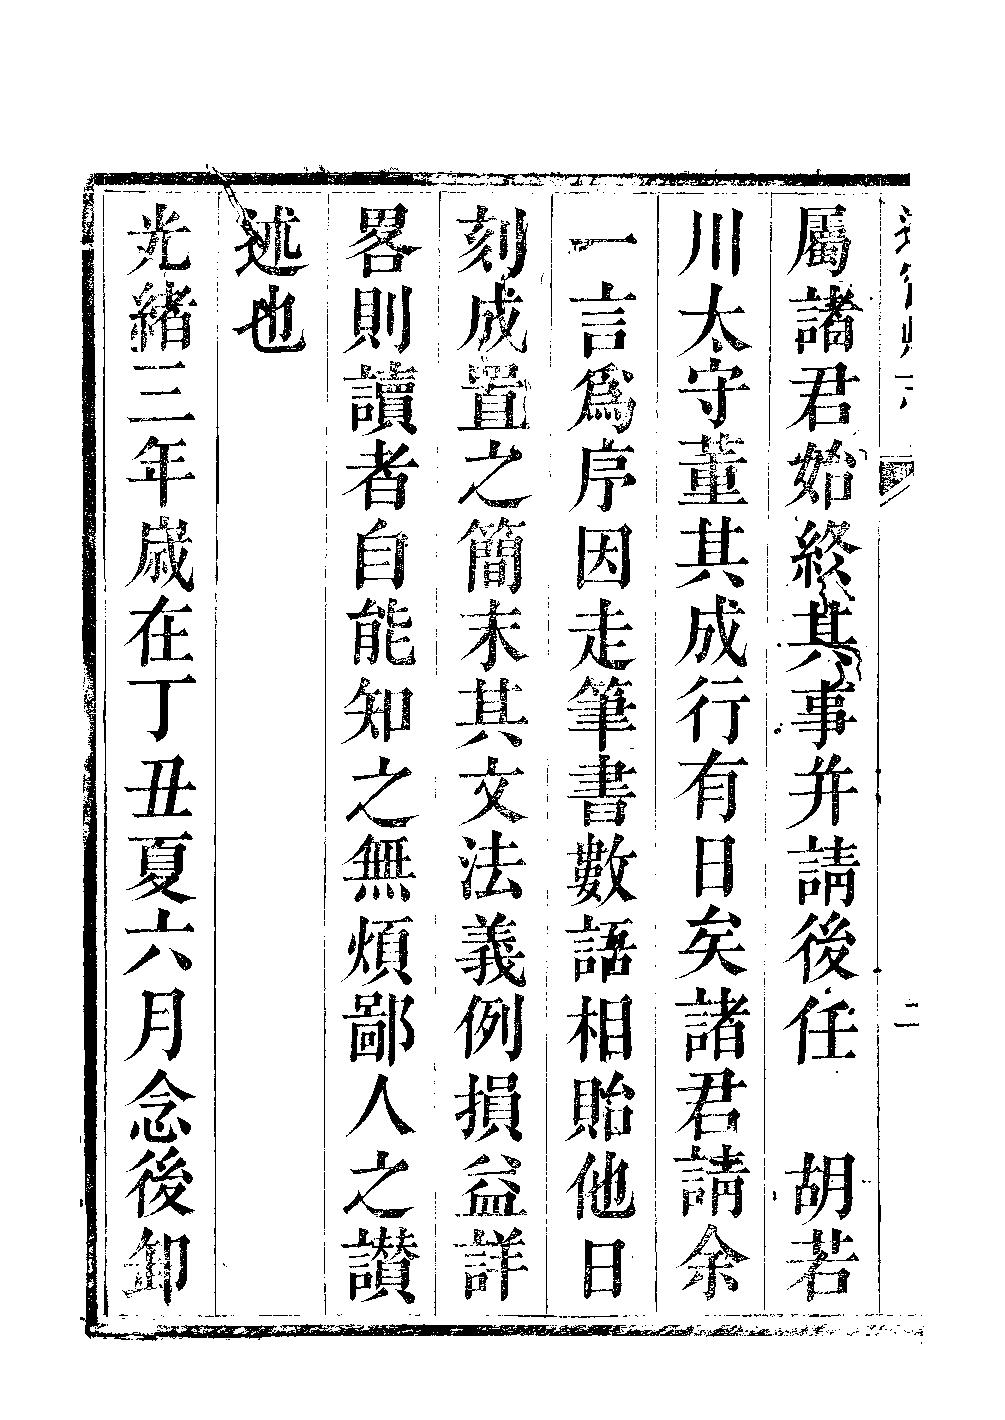 屬諸君始終其事并請後任　胡若
川太守董其成行有日矣諸君請余
一言爲序因走筆書數語相貽他日
刻成置之簡末其文法義例損益詳
畧則讀者自能知之無煩鄙人之讃
述也
光緒三年歲在丁丑夏六月念後卸
二